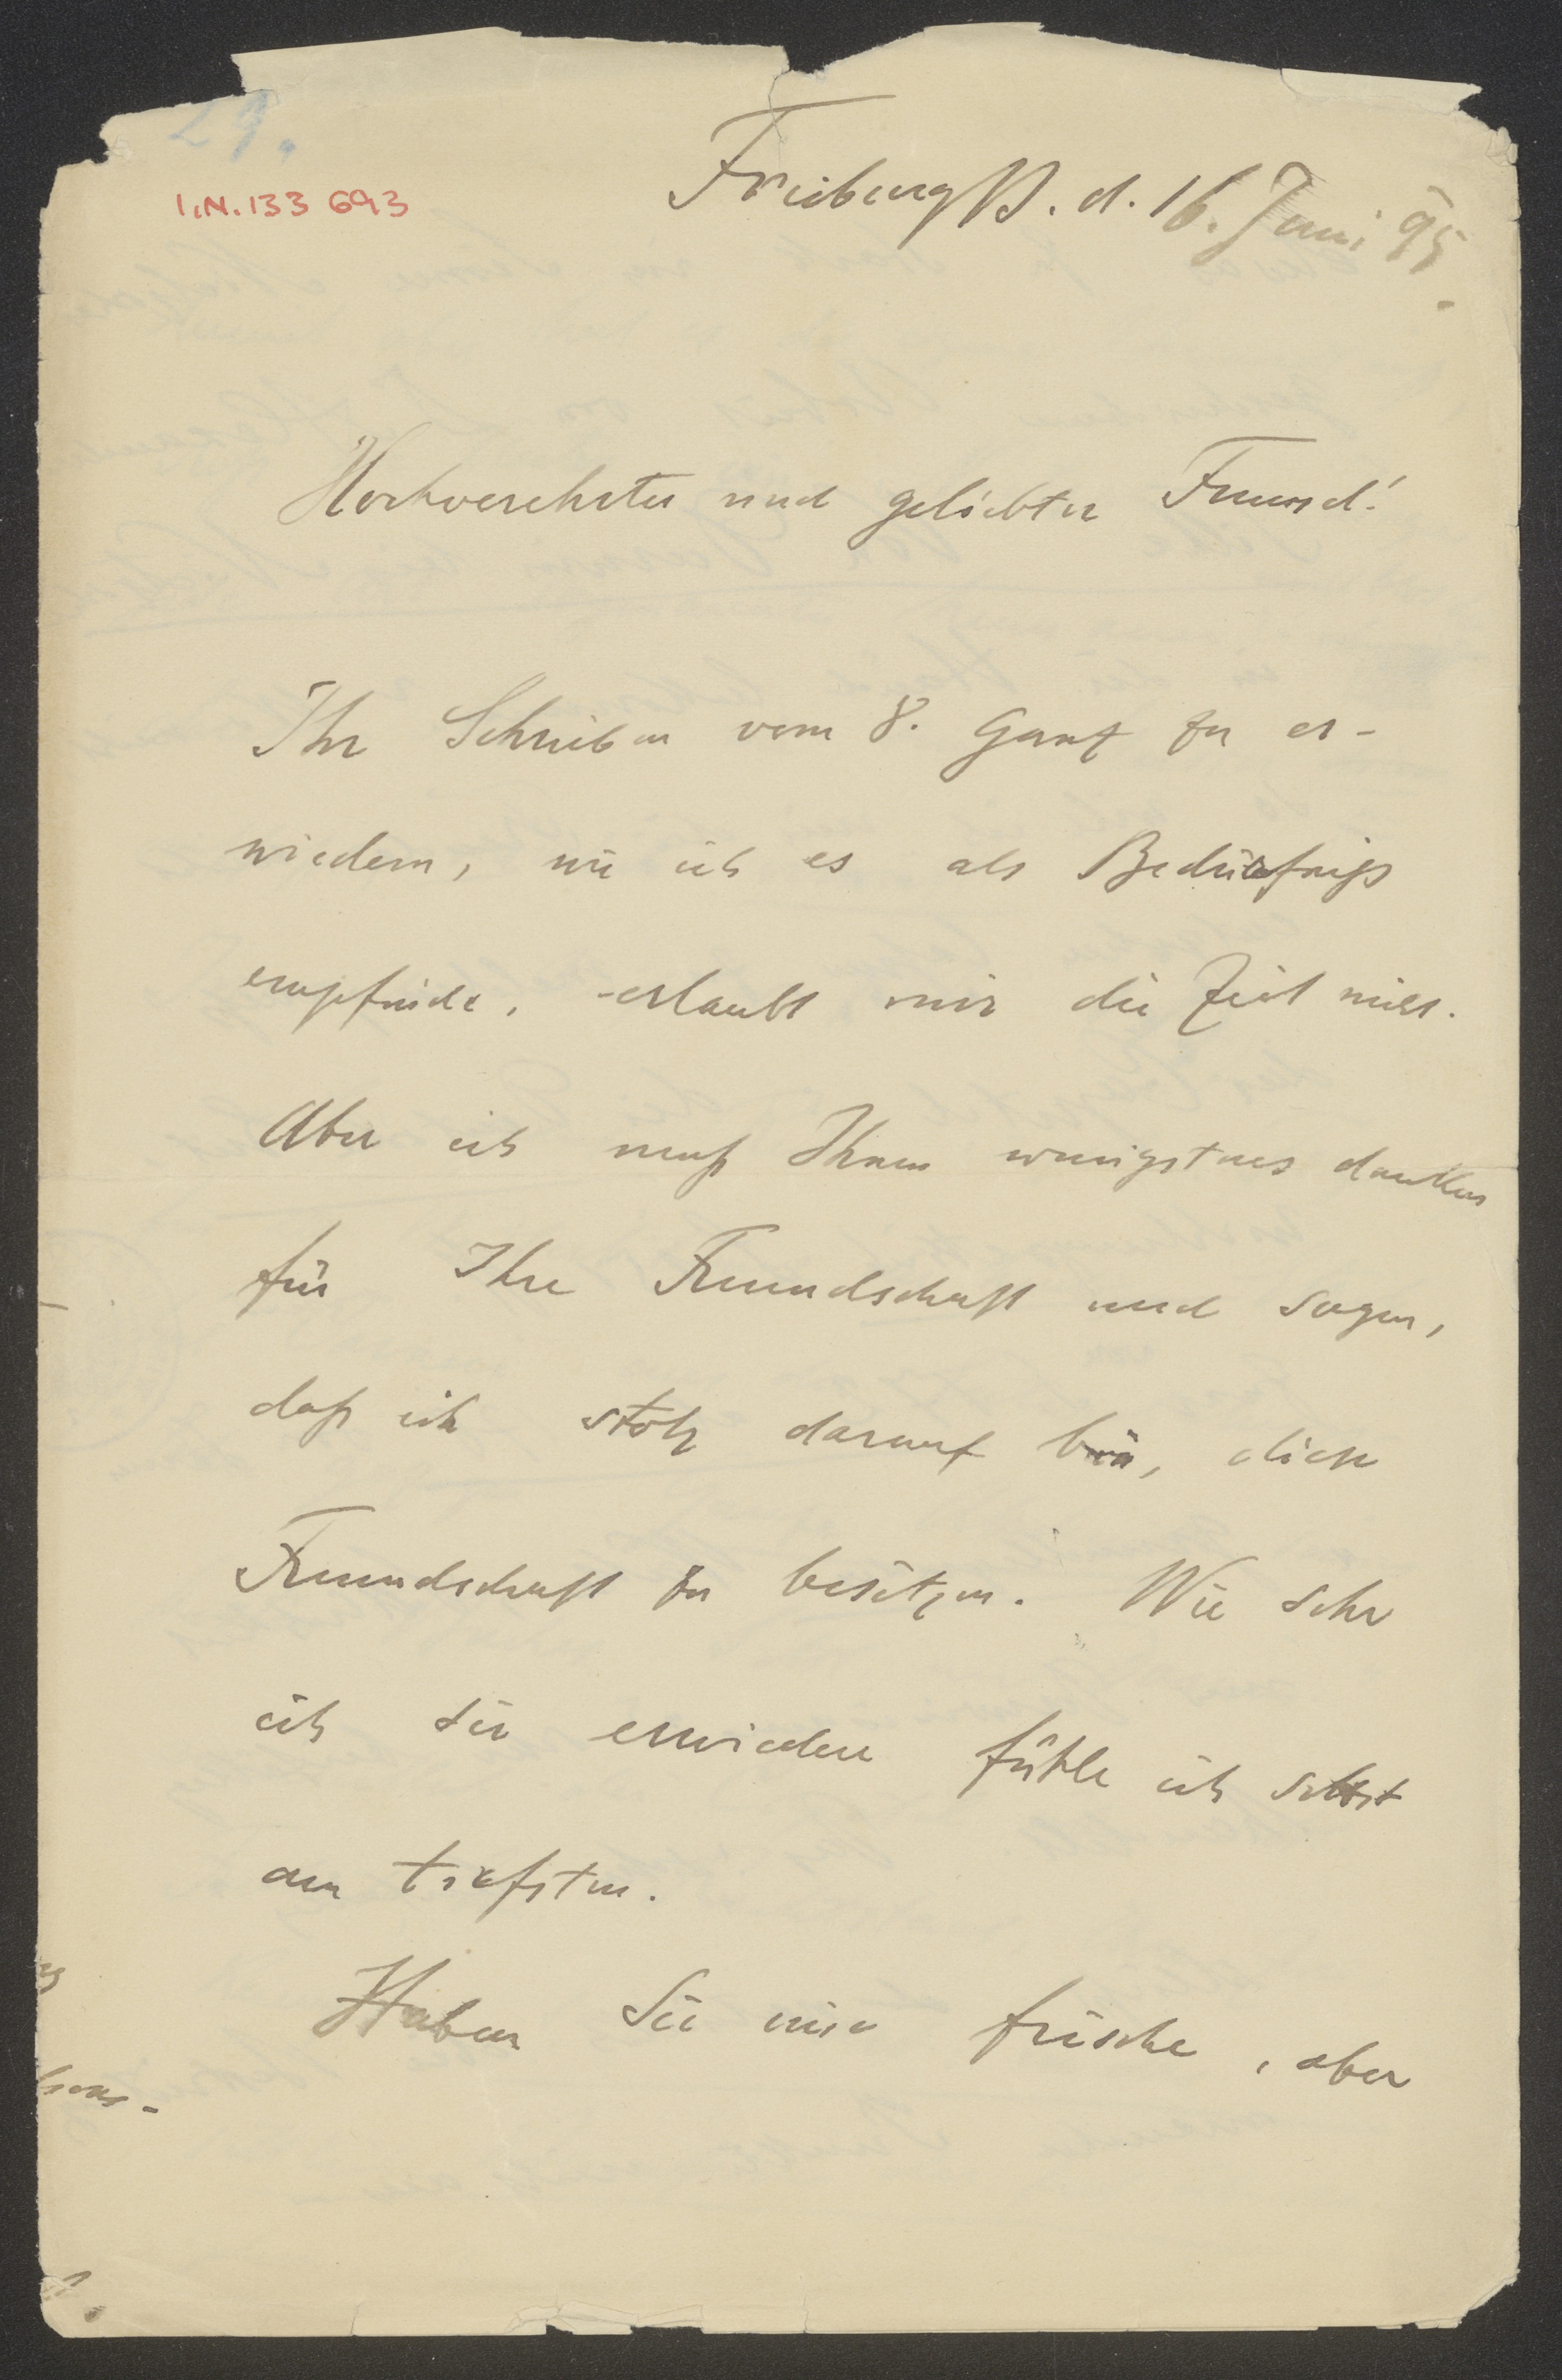 29.
I.N. 133 693
Freiburg B. d. 16. Juni 95.
Hochverehrter und geliebter Freund!
Ihr Schreiben vom 8. ganz zu er-
wiedern, wie ich es als Bedürfniß
empfinde, erlaubt mir die Zeit nicht.
Aber ich muß Ihnen wenigstens danken
für Ihre Freundschaft und sagen,
daß ich stolz darauf bin, diese
Freundschaft zu besitzen. Wie sehr
ich sie erwiedere fühle ich selbst
am tiefsten.
Haben Sie eine frische, aber